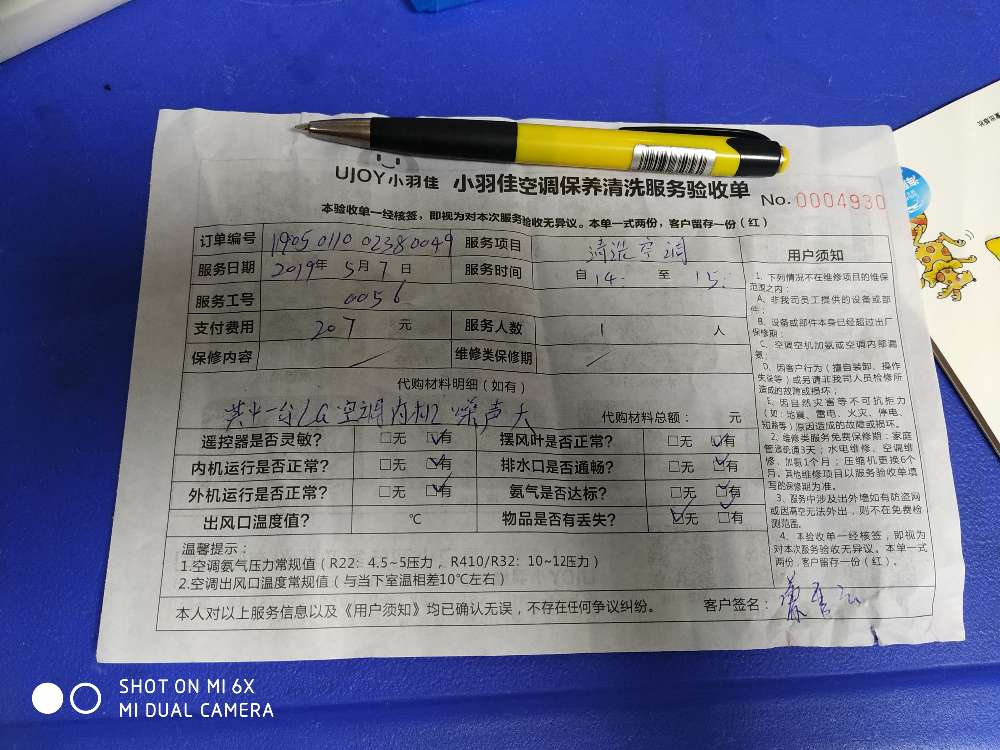 UJOY小羽佳 小羽佳空调保养清洗服务验收单 No. 0004930
本验收单一经核签，即视为对本次服务验收无异议。本单一式两份，客户留存一份（红）
订单编号 1905 0110 02380049 服务项目 清洗空调
服务日期 2019年 5月 7日 服务时间 自 14: 至 15:
服务工号 0056
支付费用 207 元 服务人数 1 人
保修内容 / 维修类保修期 /
代购材料明细（如有）
其中一台LG空调内机噪声大 代购材料总额： 元
遥控器是否灵敏？ □无 ☑有 摆风叶是否正常？ □无 ☑有
内机运行是否正常？ □无 ☑有 排水口是否通畅？ □无 ☑有
外机运行是否正常？ □无 ☑有 氨气是否达标？ □无 ☑有
出风口温度值？ ℃ 物品是否有丢失？ ☑无 □有
温馨提示：
1.空调氨气压力常规值（R22：4.5~5压力，R410/R32：10~12压力）
2.空调出风口温度常规值（与当下室温相差10℃左右）
本人对以上服务信息以及《用户须知》均已确认无误，不存在任何争议纠纷。 客户签名：
用户须知
1、下列情况不在维修项目的维保
范围之内：
A、非我司员工提供的设备或部
件；
B、设备或部件本身已经超过出厂
保修期；
C、空调空机加氨或空调内部漏
氨；
D、因客户行为（擅自装卸、操作
失误等）或另请非我司人员检修所
造成的故障或损坏；
E、因自然灾害等不可抗拒力
（如：地震、雷电、火灾、停电、
知滿等）原因造成的故障或损坏。
2、维修类服务免费保修期：家庭
管道疏通3天；水电维修、空调维
修、加氨1个月；压缩机更换6个
月，其他维修项目以服务验收单填
写的保修期为准。
3、服务中涉及出外墙如有防盗网
或因高空无法外出，则不在免费检
测范围。
4、本验收单一经核签，即视为
对本次服务验收无异议。本单一式
两份，客户留存一份（红）。
SHOT ON MI 6X
MI DUAL CAMERA